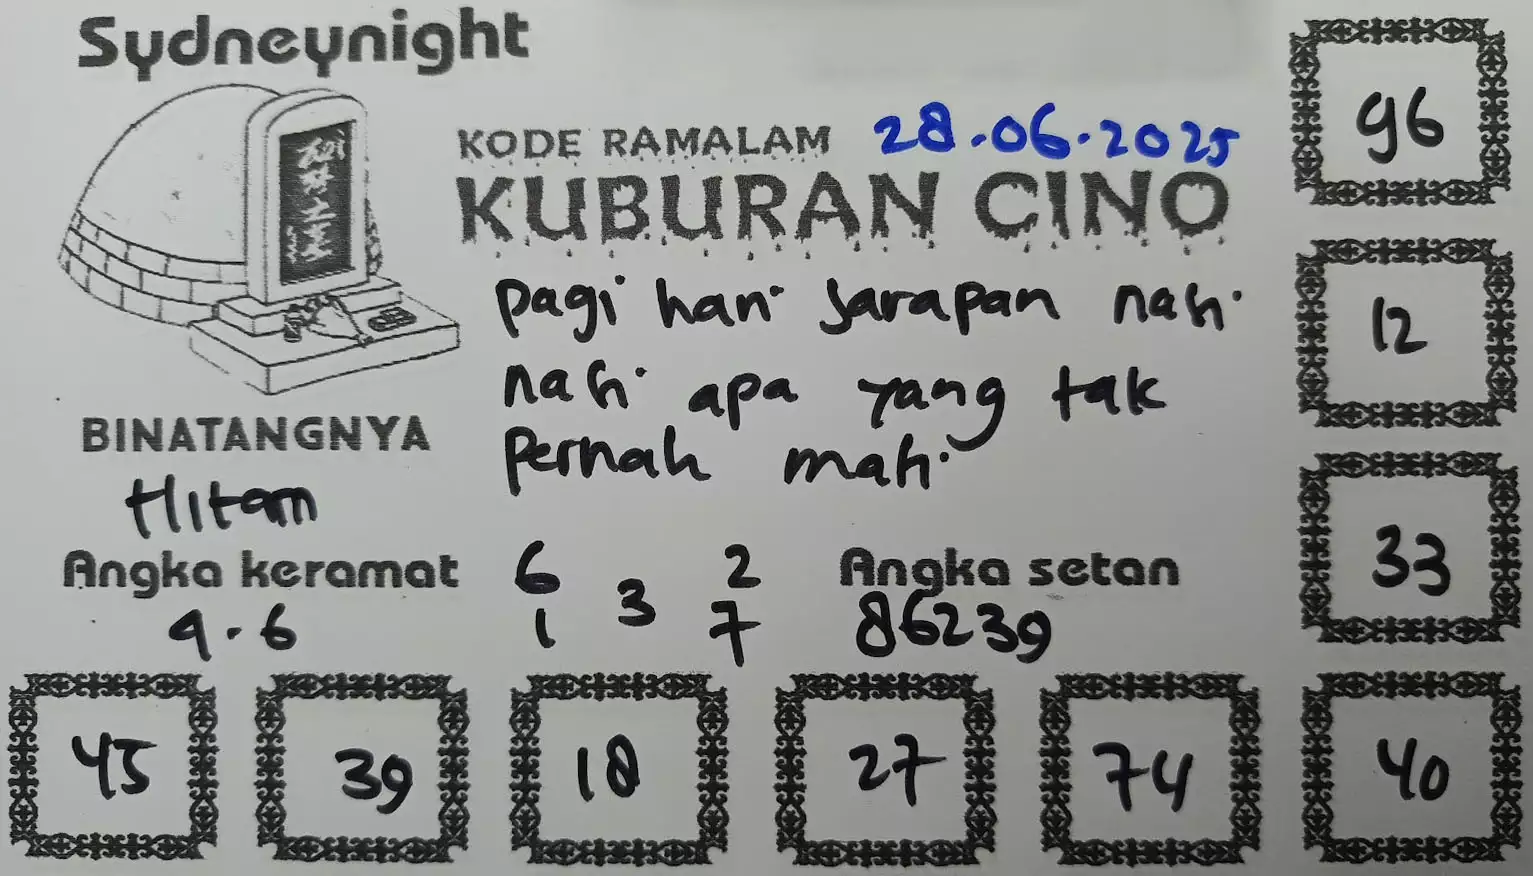 Sydneynight
KODE RAMALAM 28.06.2025
KUBURAN CINO
pagi hari sarapan nasi
nasi apa yang tak
pernah mati
BINATANGNYA
Hitam
Angka keramat
9.6
6 2
3
1 7
Angka setan
86239
96
12
33
45 39 18 27 74 40